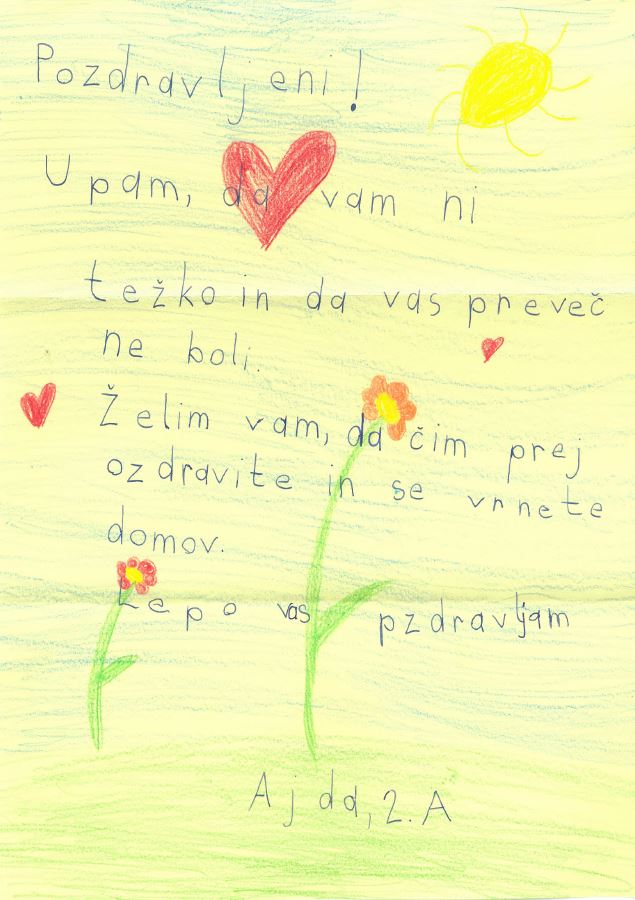 Pozdravljeni!
Upam, da vam ni
težko in da vas preveč
ne boli.
Želim vam, da čim prej
ozdravite in se vrnete
domov.
Lepo vas pzdravljam
Ajda, 2. A